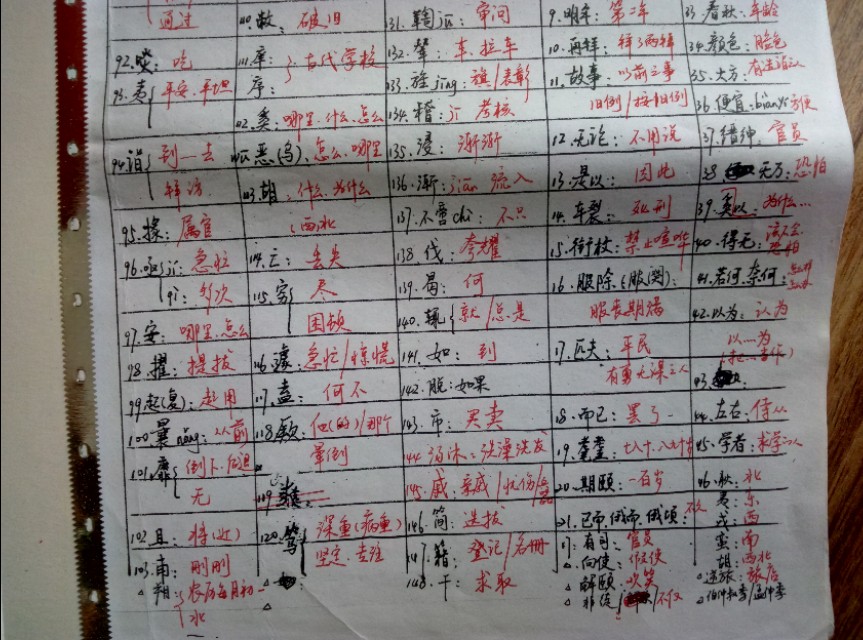 通过
92.啖：吃
93.夷 平安.平坦
94.诣 到一去
拜访
95.掾：属官
96.亟jí：急忙
qì：多次
97.安：哪里.怎么
98.擢：提拔
99.起(复)：起用
100.曩nǎng：从前
101.靡 倒下.后退
无
102.且：将(近)
103.甫：刚刚
朔：农历每月初一
水
110.敝：破旧
111.庠：
序： 古代学校
112.奚：哪里.什么.怎么
恶(乌)：怎么.哪里
113.胡：什么.为什么
西北
114.亡：丢失
115.穷 尽
困顿
116.遽 急忙/惊慌
117.盍：何不
118.厥：他(的)/那个
晕倒
119.
120.笃 深重(病重)
坚定.专注
131.鞫讯：审问
132.辇：车.拉车
133.旌jīng：旗/表彰
134.稽：jī 考核
135.浸：渐渐
136.渐：jiān 流入
137.不啻chì：不只
138.伐：夸耀
139.曷：何
140.辄 就/总是
141.如：到
142.脱：如果
143.市：买卖
144.汤沐：洗澡洗发
145.戚：亲戚/忧伤
146.简：选拔
147.籍：登记/名册
148.干：求取
9.明年：第二年
10.再拜：拜了两拜
11.故事：以前之事
旧例/按旧例
12.无论：不用说
13.是以：因此
14.车裂：死刑
15.衔枚：禁止喧哗
16.服除(服阕)：
服丧期满
17.匹夫：平民
有勇无谋之人
18.而已：罢了
19.耄耋：七八十.八九十岁
20.期颐：一百岁
21.已而.俄而.俄顷：不久
有司：官员
向使：假使
解颐：欢笑
33.春秋：年龄
34.颜色：脸色
35.大方：有道之人
36.便宜：biànyí方便
37.缙绅：官员
38.无乃：恐怕
39.奚以：为什么…
40.得无：该不会
恐怕
41.若何.奈何：
42.以为：认为
以……为
43.
44.左右：侍从
45.学者：求学之人
46.狄：北
夷：东
戎：西
蛮：南
胡：西北
逆旅：旅店
伯仲叔季/孟仲季